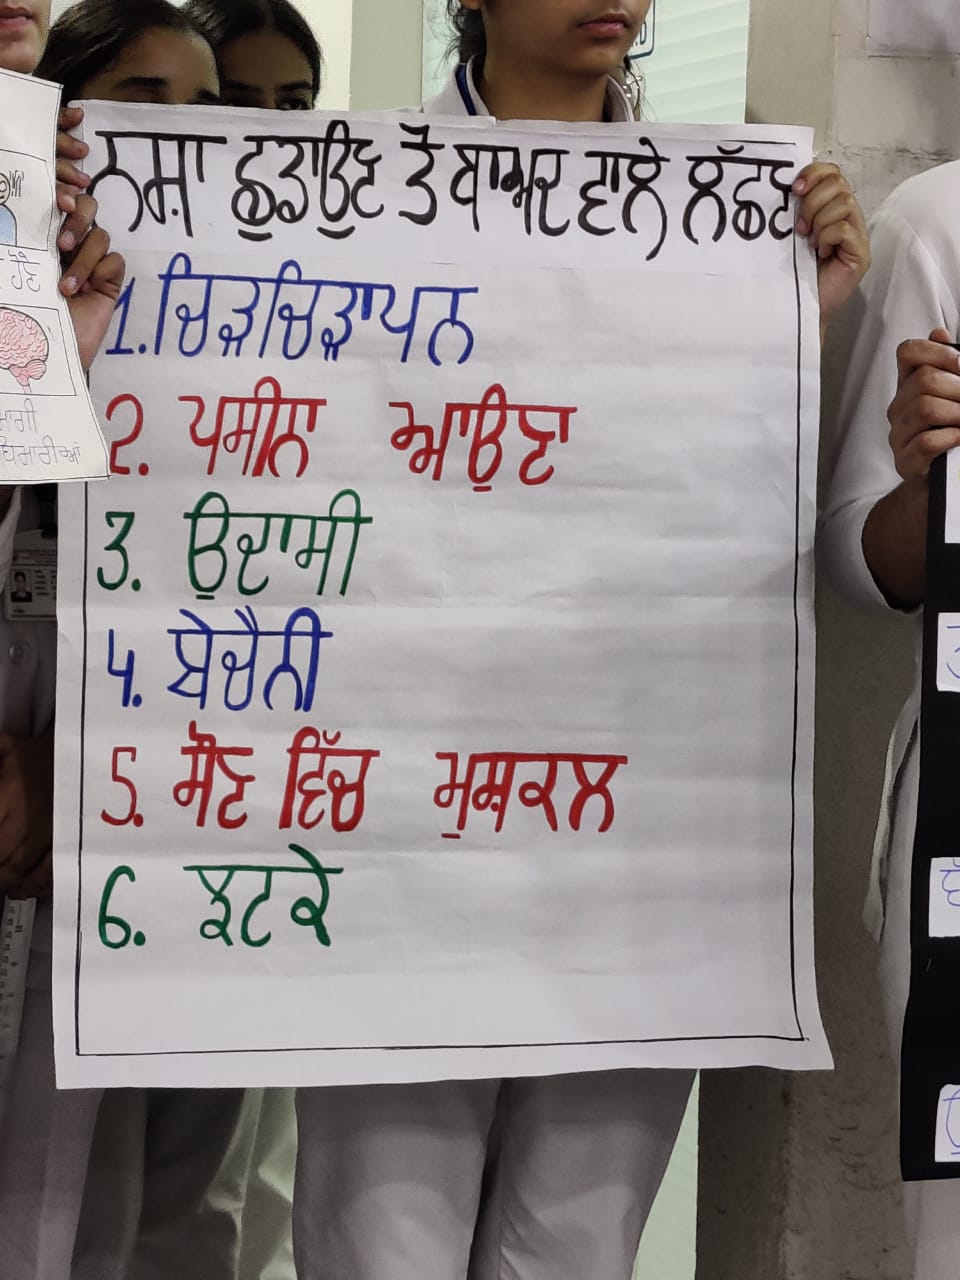 ਨਸ਼ਾ ਛੁਡਾਉਣ ਤੋਂ ਬਾਅਦ ਵਾਲੇ ਲੱਛਣ
1. ਚਿੜਚਿੜਾਪਨ
2. ਪਸੀਨਾ ਆਉਣਾ
3. ਉਦਾਸੀ
4. ਬੇਚੈਨੀ
5. ਸੌਣ ਵਿੱਚ ਮੁਸ਼ਕਲ
6. ਝਟਕੇ